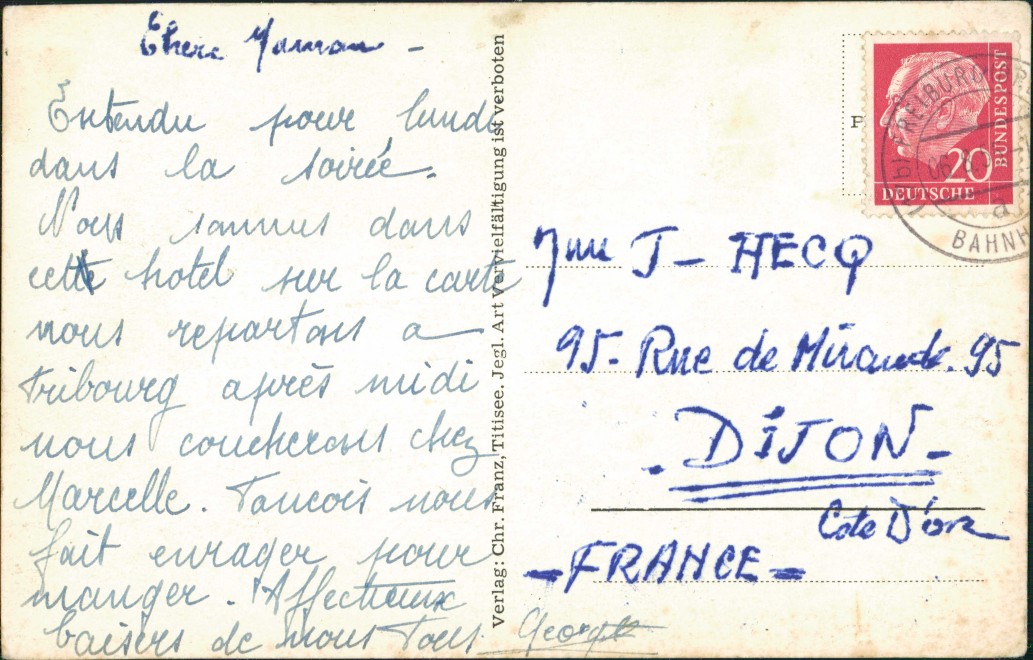 Chere Maman -
Entendu pour lundi
dans la soirée.
Nous sommes dans
cette hotel sur la carte
nous repartons a
Fribourg après midi
nous coucherons chez
Marcelle. Francois nous
fait enrager pour
manger. Affectueux
baisers de nous tous
Georgette
Verlag: Chr. Franz, Titisee. Jegl. Art Vervielfältigung ist verboten
P
20
DEUTSCHE
BUNDESPOST
FREIBURG
a
BAHNH
Mme J - HECQ
95 - Rue de Mirande. 95
. DIJON -
Cote D'or
- FRANCE -